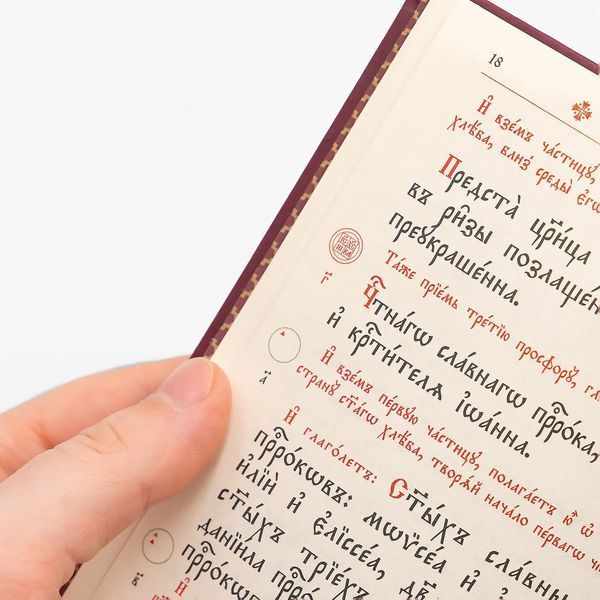 18
И҆ взе́мъ части́цꙋ,
хлѣ́ба, бли́з̾ среды̀ є҆гѡ̀
Предста̀ цр҃и́ца
въ ри̑зы позлаще́н
преꙋкраше́нна.
Та́же прїе́мь тре́тїю просфорꙋ̀, гл
г҃
Чⷭ҇тна́гѡ сла́внагѡ прⷪ҇ро́ка,
и҆ крⷭ҇ти́телѧ і҆ѡа́нна.
И҆ взе́мъ пе́рвꙋю части́цꙋ, полага́етъ ю҆̀ ѡ҆
странꙋ̀ ст҃а́гѡ хлѣ́ба, творѧ́й нача́ло пе́рвагѡ чи
а҃
И҆ глаго́летъ: Ст҃ы́хъ сла́вны
прⷪ҇ро́кѡвъ: мѡѷсе́а и҆
и҆лїи̑ и҆ є҆лїссе́а, и҆
ст҃ы́хъ трїе́хъ
данїи́ла прⷪ҇ро
прⷪ҇ро́кѡв
в҃
И҆